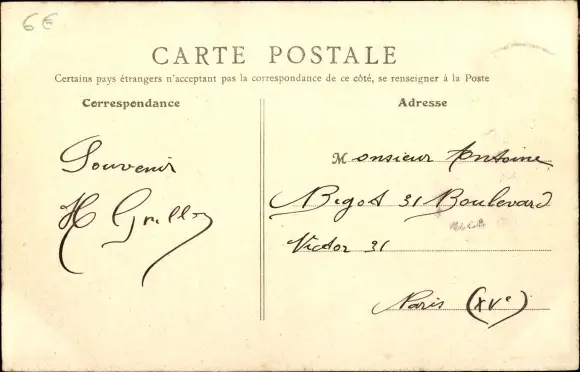 6€
CARTE POSTALE
Certains pays étrangers n'acceptant pas la correspondance de ce côté, se renseigner à la Poste
Correspondance
Souvenir
H
Adresse
Monsieur Antoine
Bigot 31 Boulevard
Victor 31
Paris (XVe)